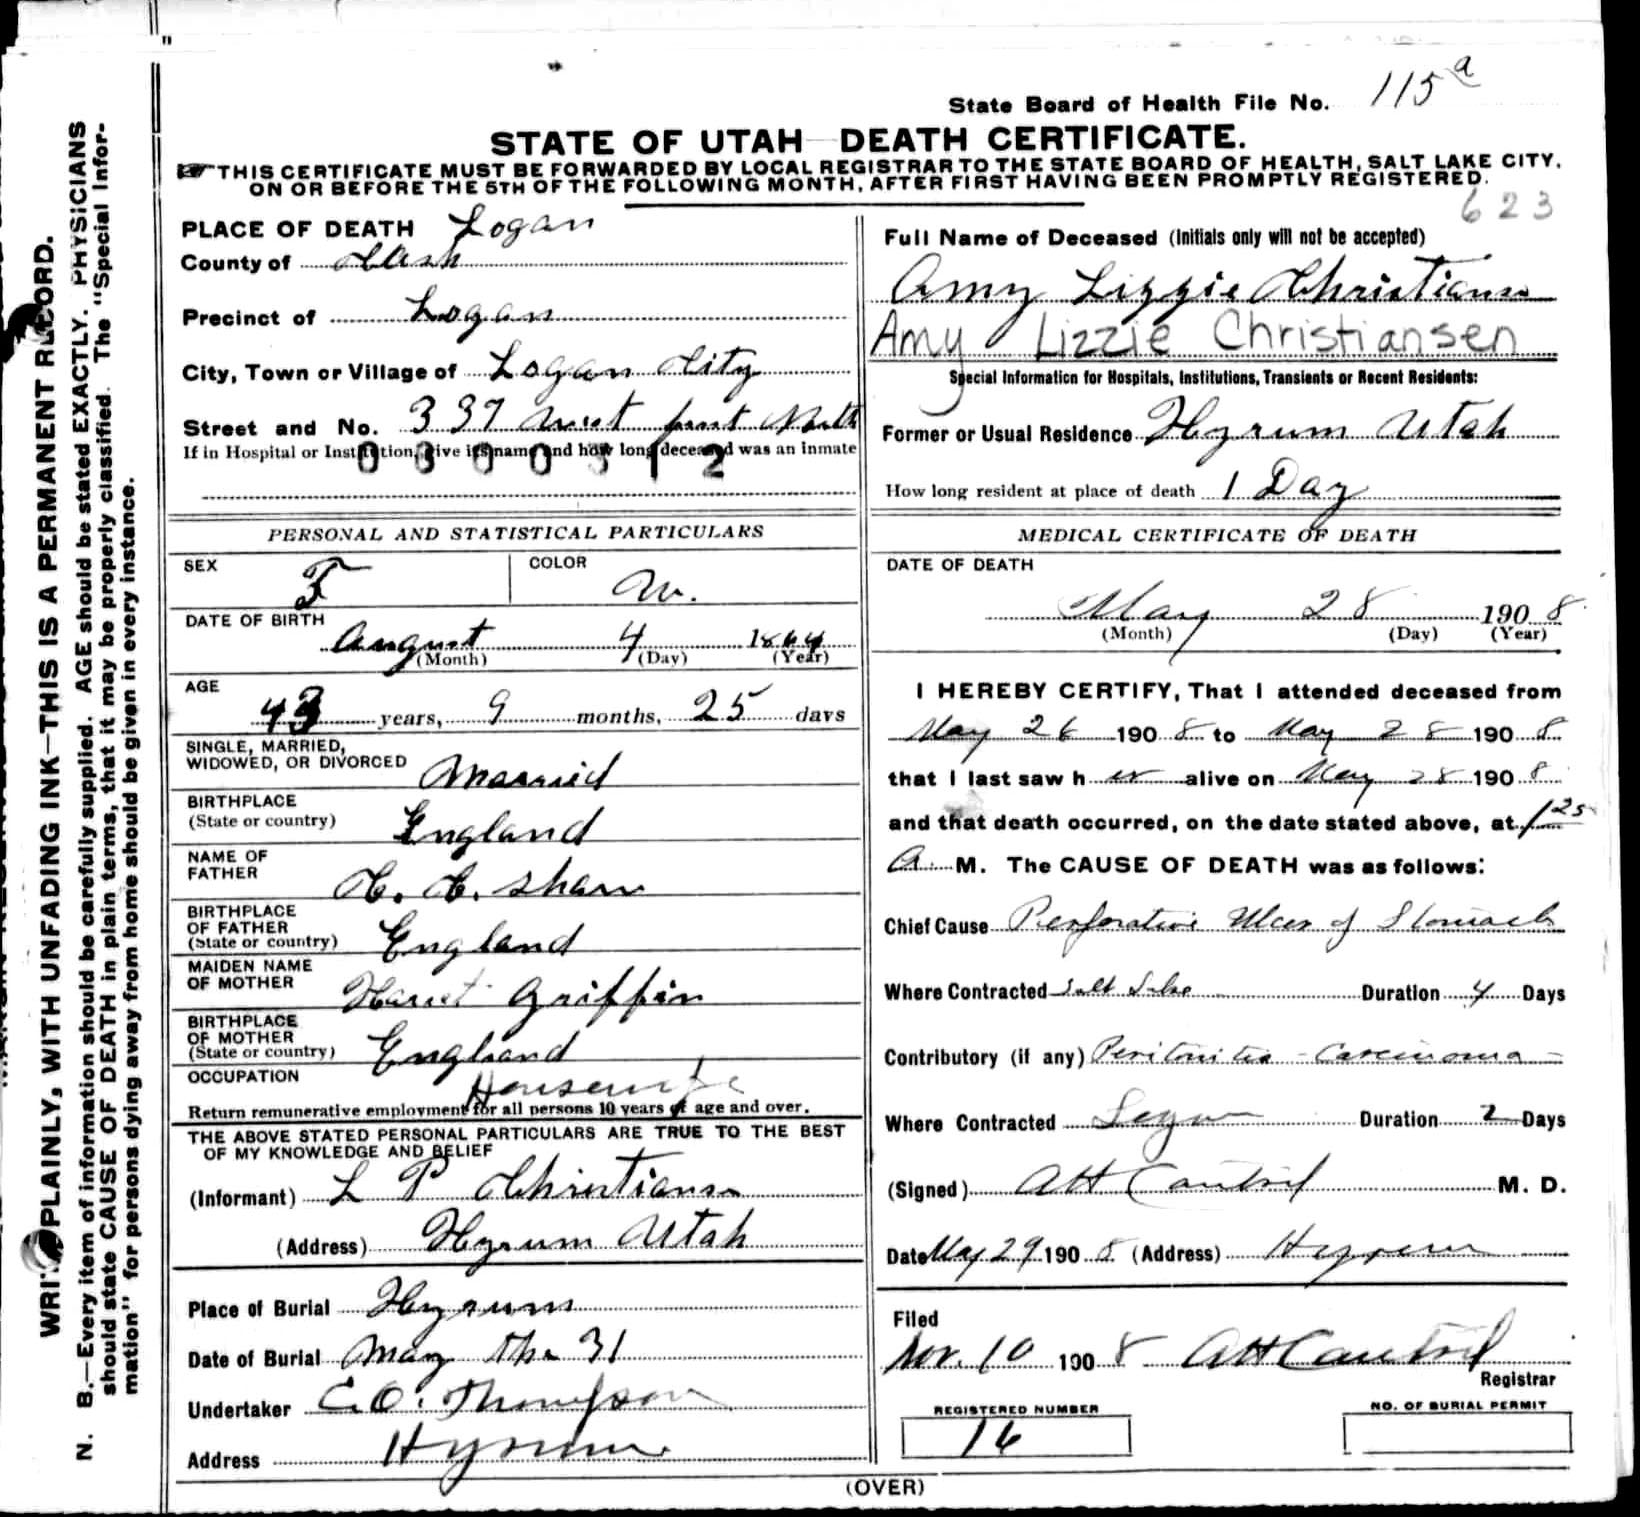 State Board of Health File No. 115a
STATE OF UTAH—DEATH CERTIFICATE.
THIS CERTIFICATE MUST BE FORWARDED BY LOCAL REGISTRAR TO THE STATE BOARD OF HEALTH, SALT LAKE CITY,
ON OR BEFORE THE 5TH OF THE FOLLOWING MONTH, AFTER FIRST HAVING BEEN PROMPTLY REGISTERED.
623
WRITE PLAINLY, WITH UNFADING INK—THIS IS A PERMANENT RECORD.
N. B.—Every item of information should be carefully supplied. AGE should be stated EXACTLY. PHYSICIANS
should state CAUSE OF DEATH in plain terms, that it may be properly classified. The "Special Infor-
mation" for persons dying away from home should be given in every instance.
PLACE OF DEATH Logan
County of Cash
Precinct of Logan
City, Town or Village of Logan City
Street and No. 337 West first North
If in Hospital or Institution, give its name and how long deceased was an inmate
PERSONAL AND STATISTICAL PARTICULARS
SEX F COLOR W.
DATE OF BIRTH August 4 1864
(Month) (Day) (Year)
AGE 43 years, 9 months, 25 days
SINGLE, MARRIED,
WIDOWED, OR DIVORCED Married
BIRTHPLACE
(State or country) England
NAME OF
FATHER Shaw
BIRTHPLACE
OF FATHER
(State or country) England
MAIDEN NAME
OF MOTHER Harriet Griffin
BIRTHPLACE
OF MOTHER
(State or country) England
OCCUPATION Housewife
Return remunerative employment for all persons 10 years of age and over.
THE ABOVE STATED PERSONAL PARTICULARS ARE TRUE TO THE BEST
OF MY KNOWLEDGE AND BELIEF
(Informant) L P Christianse
(Address) Hyrum Utah
Place of Burial Hyrum
Date of Burial May the 31
Undertaker C.O. Thompson
Address Hyrum
Full Name of Deceased (Initials only will not be accepted)
Amy Lizzie Christianse
Amy Lizzie Christiansen
Special Information for Hospitals, Institutions, Transients or Recent Residents:
Former or Usual Residence Hyrum Utah
How long resident at place of death 1 Day
MEDICAL CERTIFICATE OF DEATH
DATE OF DEATH
May 28 1908
(Month) (Day) (Year)
I HEREBY CERTIFY, That I attended deceased from
May 26 1908 to May 28 1908
that I last saw her alive on May 28 1908
and that death occurred, on the date stated above, at 1 25
A M. The CAUSE OF DEATH was as follows:
Chief Cause Perforative Ulcer of Stomach
Where Contracted Salt Lake Duration 4 Days
Contributory (if any) Peritonitis - Carcinoma -
Where Contracted Logan Duration 2 Days
(Signed) M. D.
Date May 29 1908 (Address) Hyrum
Filed
Nov. 10 1908
Registrar
REGISTERED NUMBER
16
NO. OF BURIAL PERMIT
(OVER)